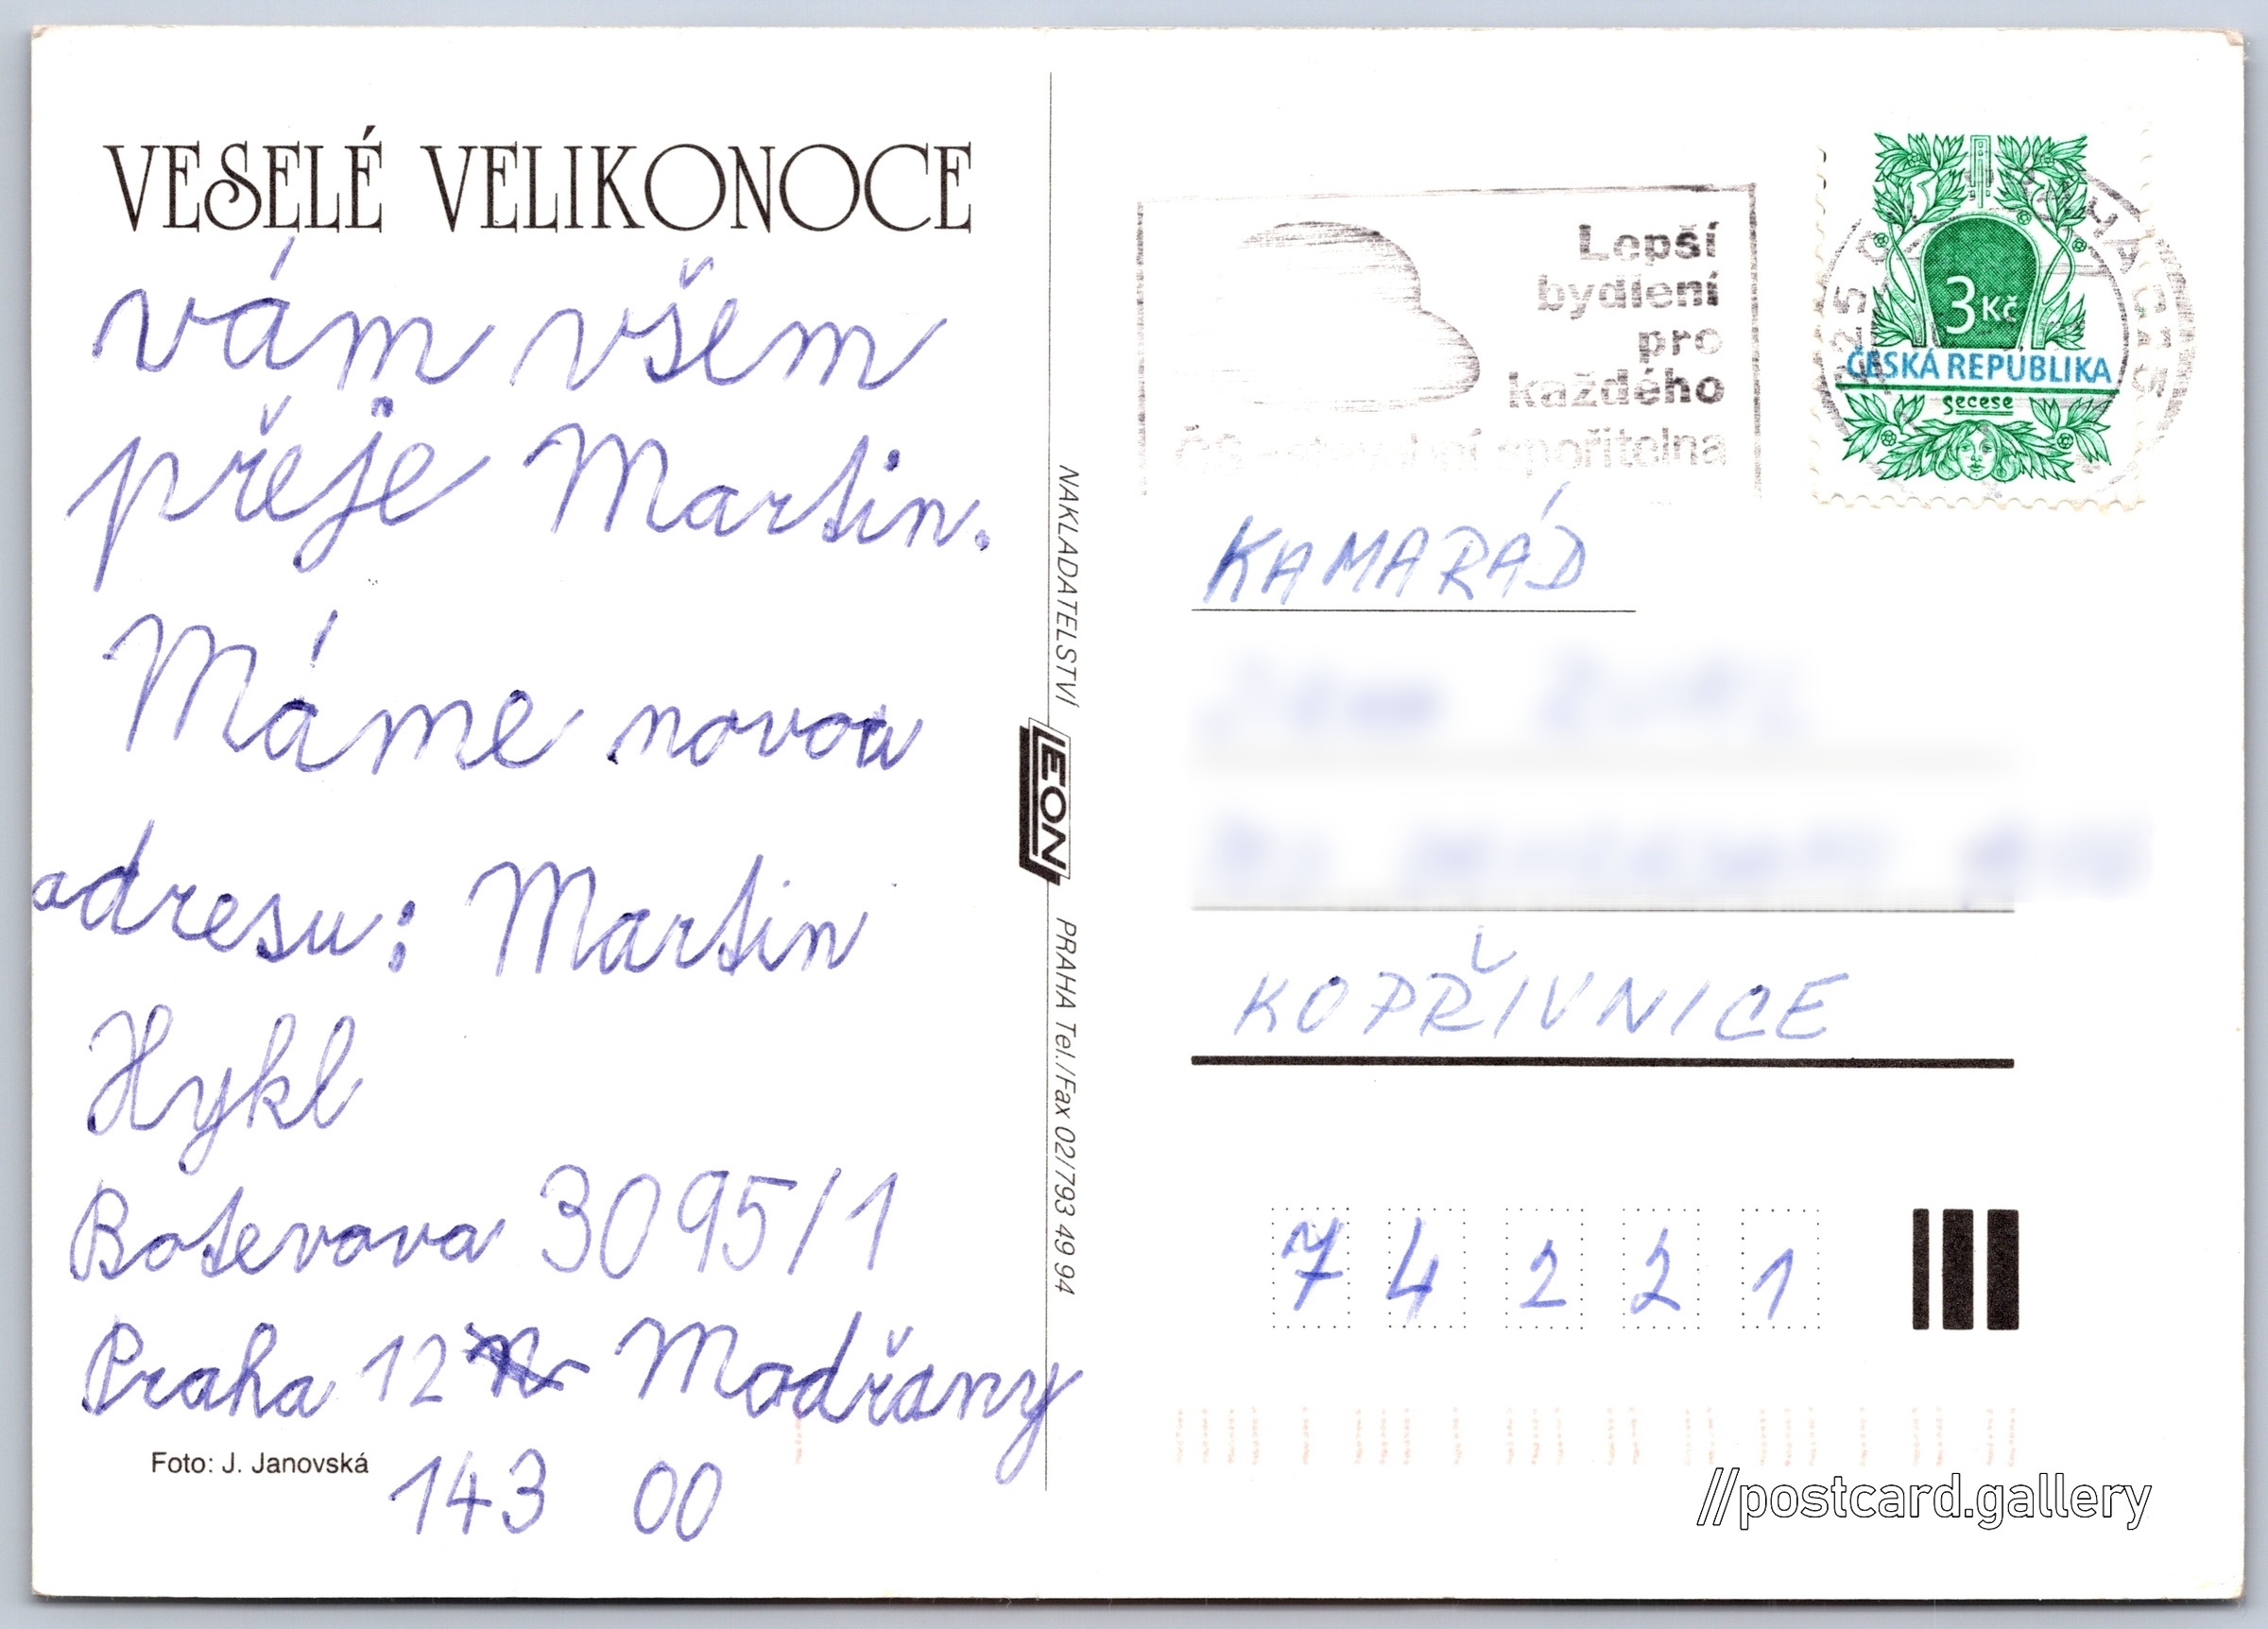 VESELÉ VELIKONOCE
vám všem
přeje Martin.
Máme novou
adresu: Martin
Hykl
Botevova 3095/1
Praha 12 Modřany
143 00
Foto: J. Janovská
NAKLADATELSTVÍ LEON PRAHA Tel./Fax 02/793 49 94
Lepší
bydlení
pro
každého
ČS spořitelna
3 Kč
ČESKÁ REPUBLIKA
secese
PRAHA 025
KAMARÁD
KOPŘIVNICE
7 4 2 2 1
//postcard.gallery